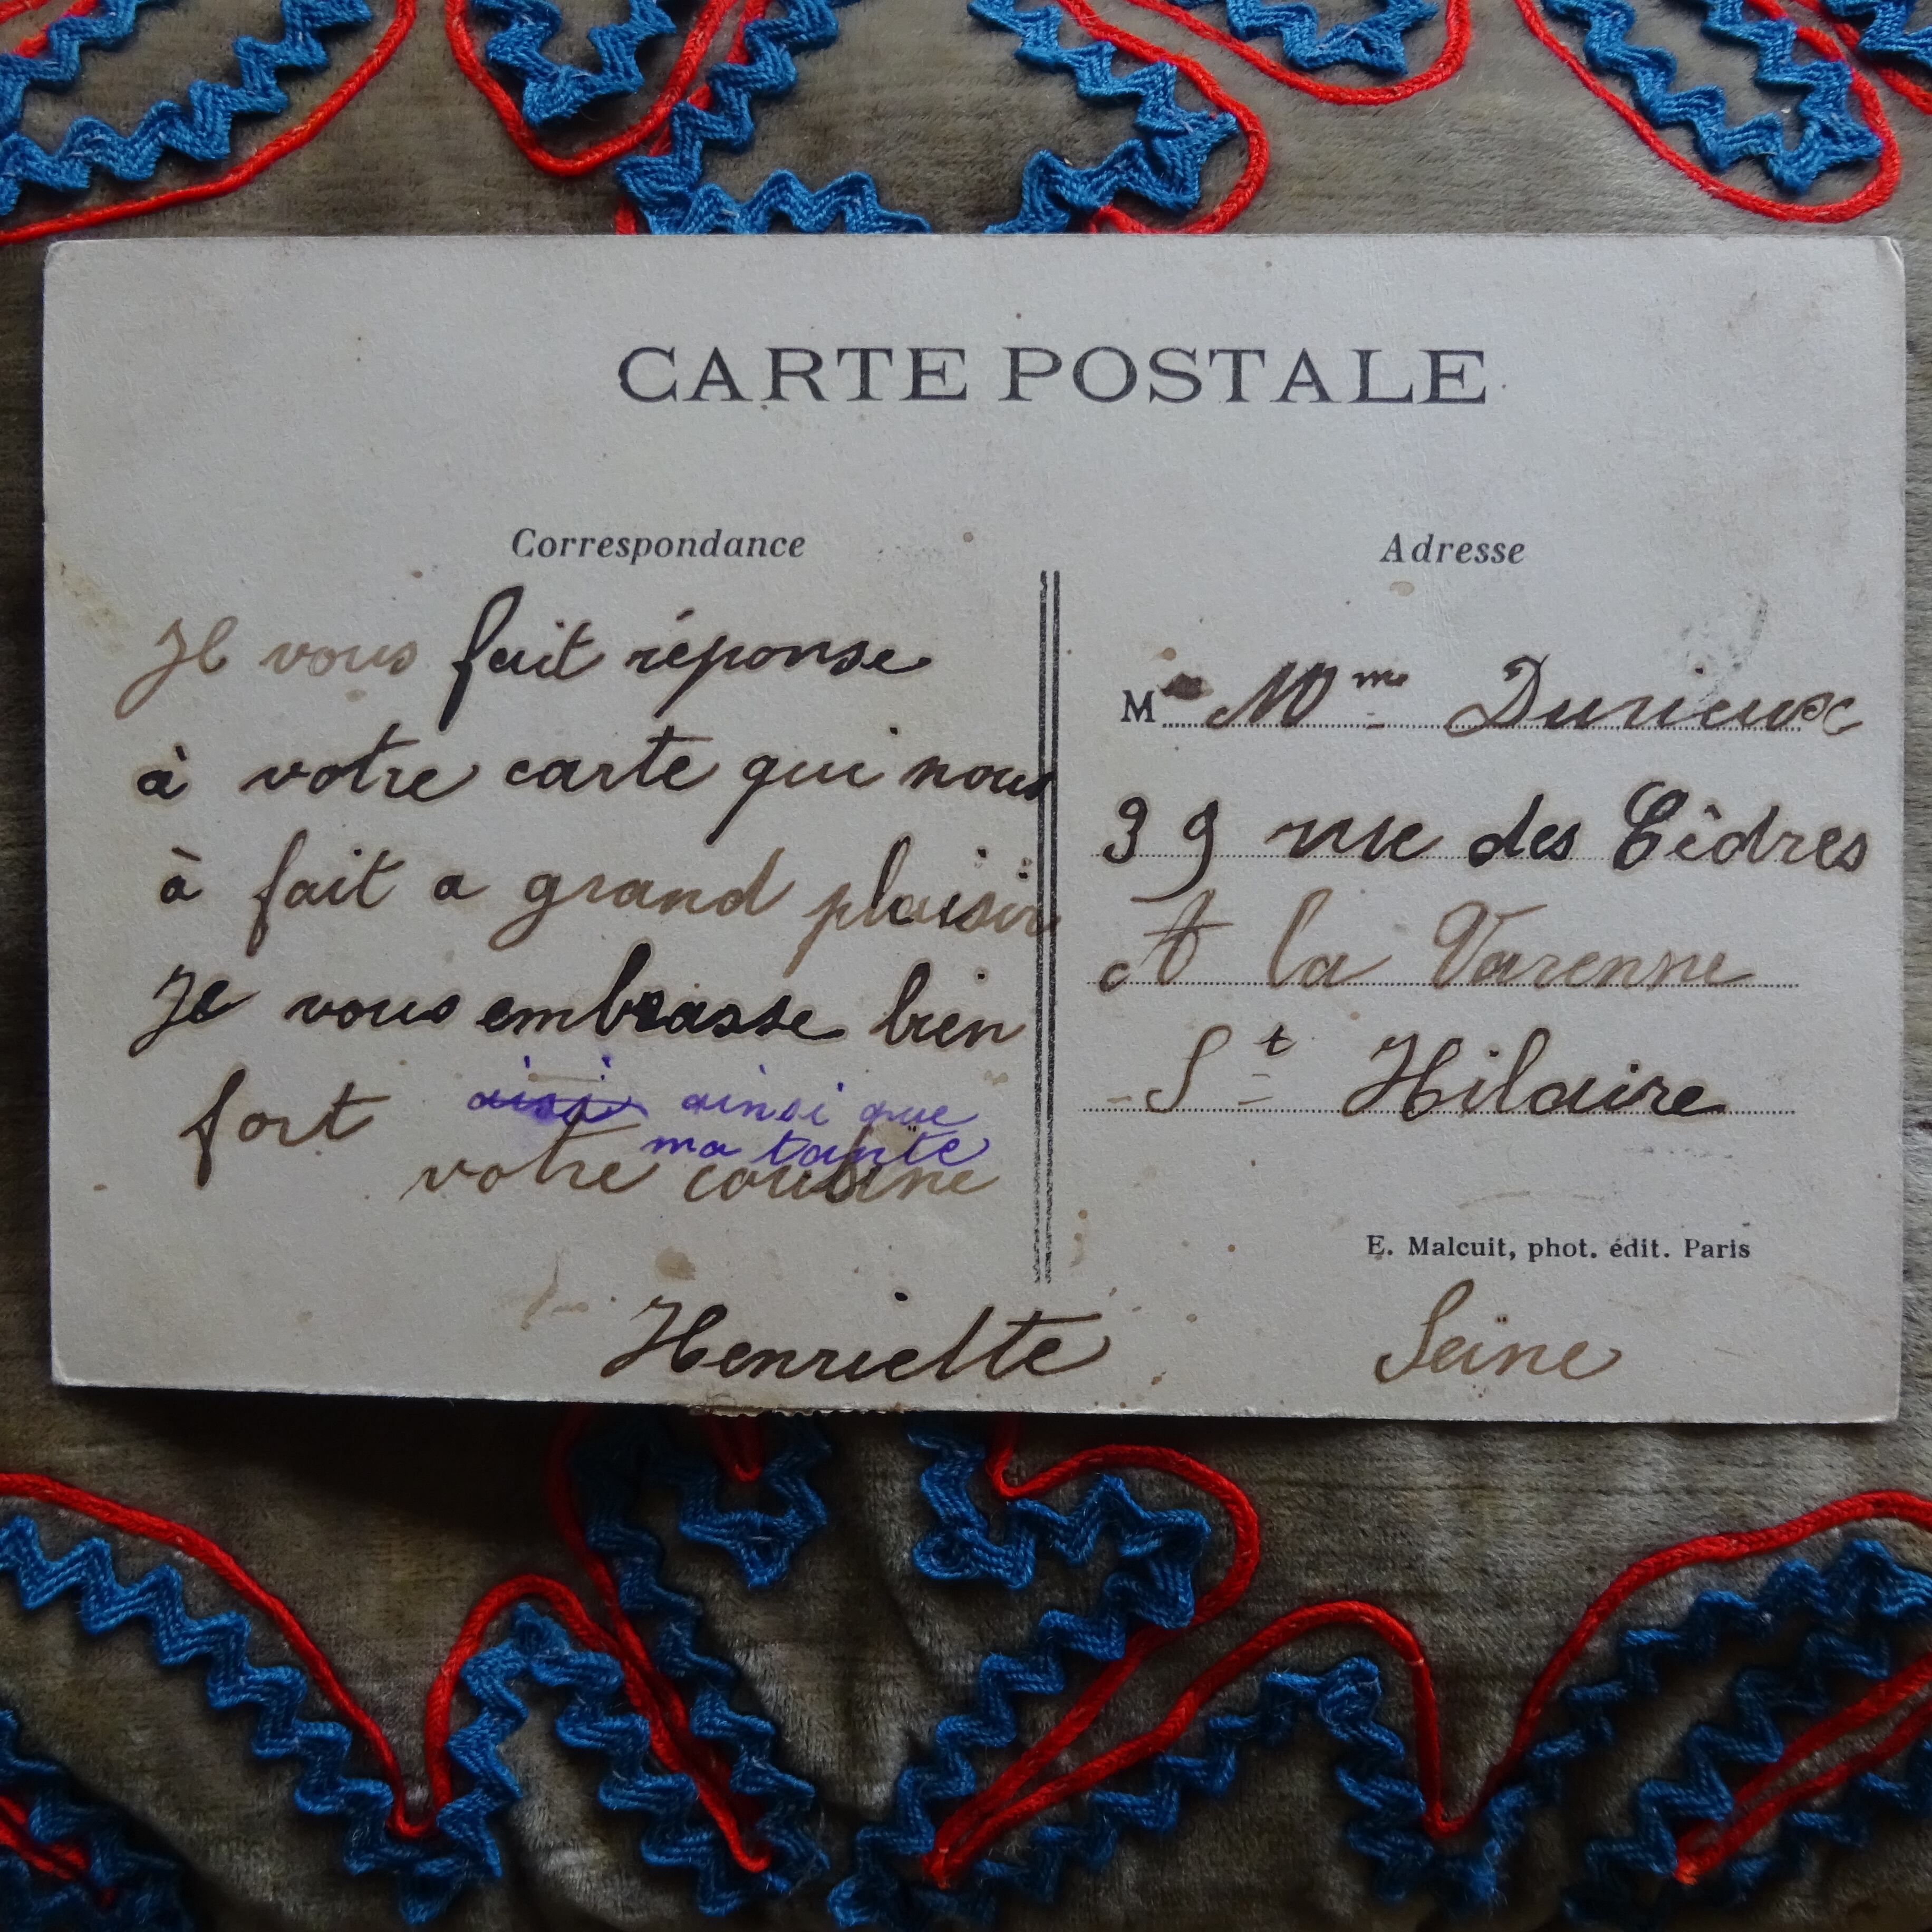 CARTE POSTALE
Correspondance
Je vous fait réponse
à votre carte qui nous
à fait a grand plaisir
Je vous embrasse bien
fort ainsi que
ma tante
votre cousine
Henriette
Adresse
M Mme Durieux
39 rue des Cêdres
A la Varenne
- St Hilaire
E. Malcuit, phot. édit. Paris
Seine